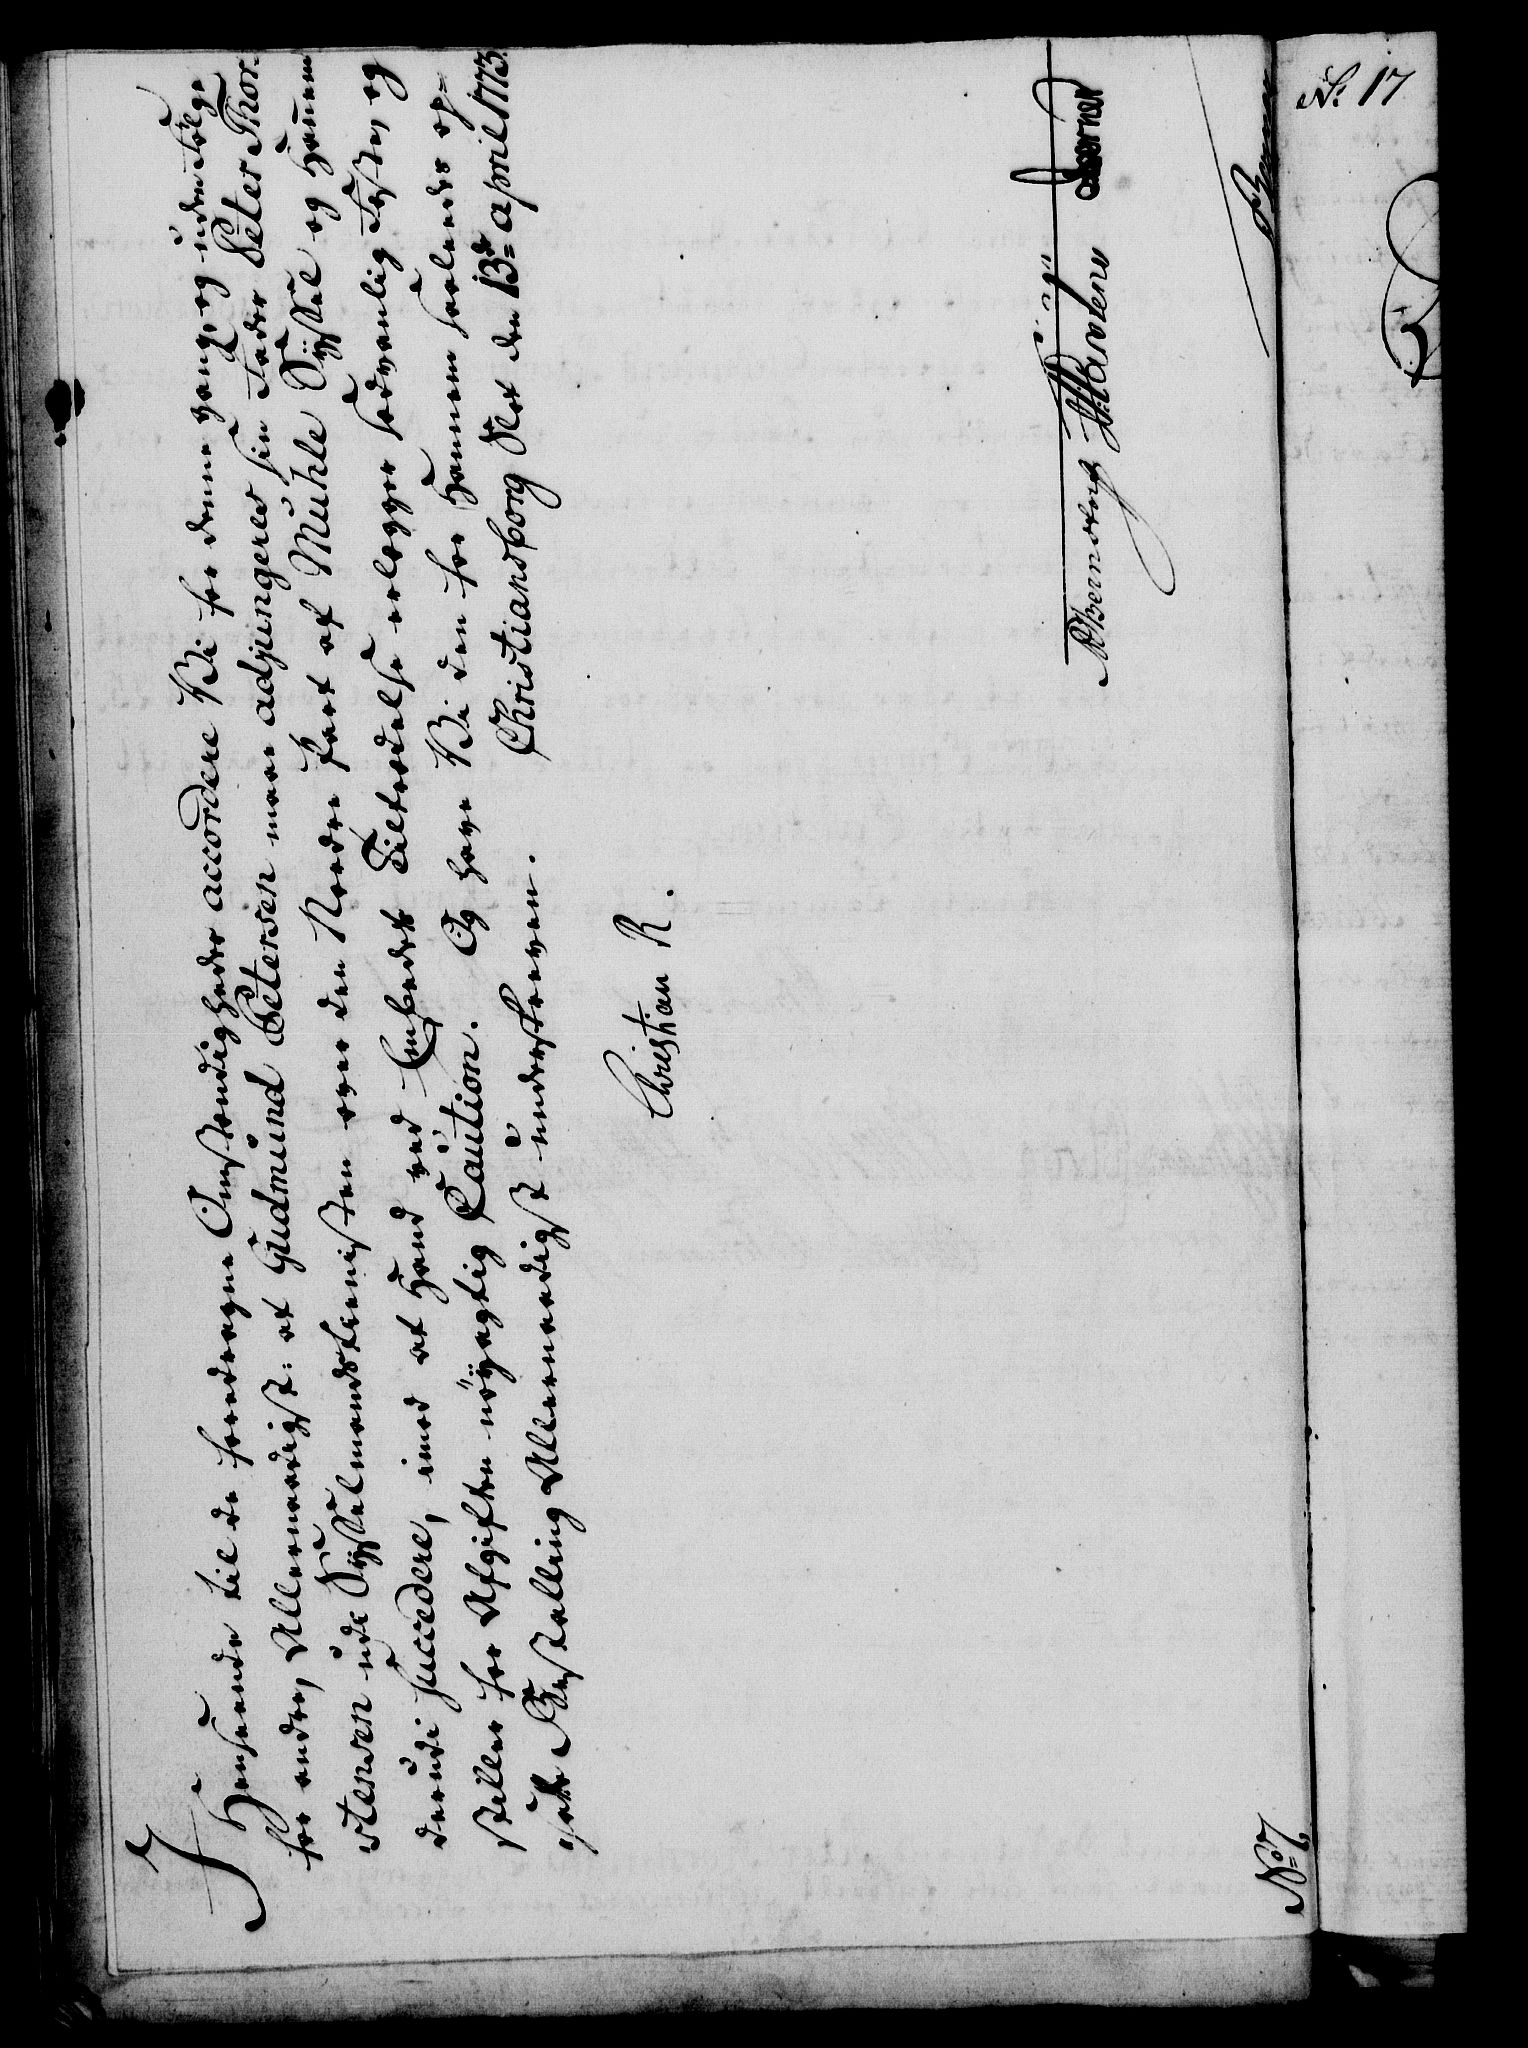 I
Henseende til de foredragne Omstændigheder accordere Vi for denne gang, og uden Følge
for andre, Allernaadigst: at Gudmund Petersen maae adjungeres sin Fader Peter Thor-
stensen udi Sysselmandstienisten over den Nordre Part af Muhle Syssel og hannem
derudi succedere, imod at hand ved Embedets Tiltrædelse erlægger sædvanlig Fæste, og
stiller for Afgiften nöyagtig Caution. Og have Vi den for hannem saaledes op-
satte Bestalling Allernaadigst underskreven. Christiansborg Slot den 13de april 1773.
Christian R.
Bernstorff
No 7.
No 17